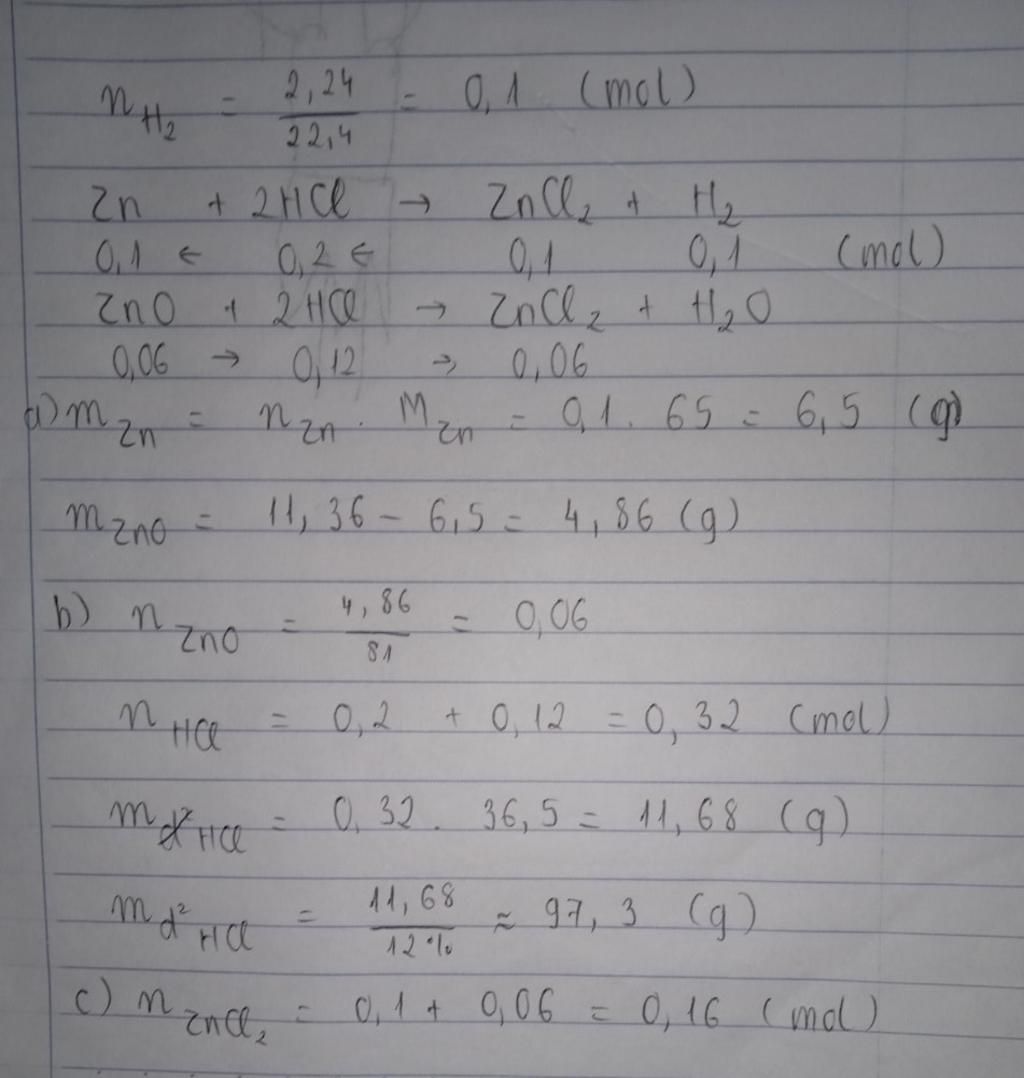 n_H₂ = 2,24/22,4 = 0,1 (mol)
Zn + 2HCl → ZnCl₂ + H₂
0,1 ← 0,2 ← 0,1 0,1 (mol)
ZnO + 2HCl → ZnCl₂ + H₂O
0,06 → 0,12 → 0,06
a) m_Zn = n_Zn . M_Zn = 0,1 . 65 = 6,5 (g)
m_ZnO = 11,36 - 6,5 = 4,86 (g)
b) n_ZnO = 4,86/81 = 0,06
n_HCl = 0,2 + 0,12 = 0,32 (mol)
m_HCl = 0,32 . 36,5 = 11,68 (g)
m_d²HCl = 11,68/12% ≈ 97,3 (g)
c) n_ZnCl₂ = 0,1 + 0,06 = 0,16 (mol)